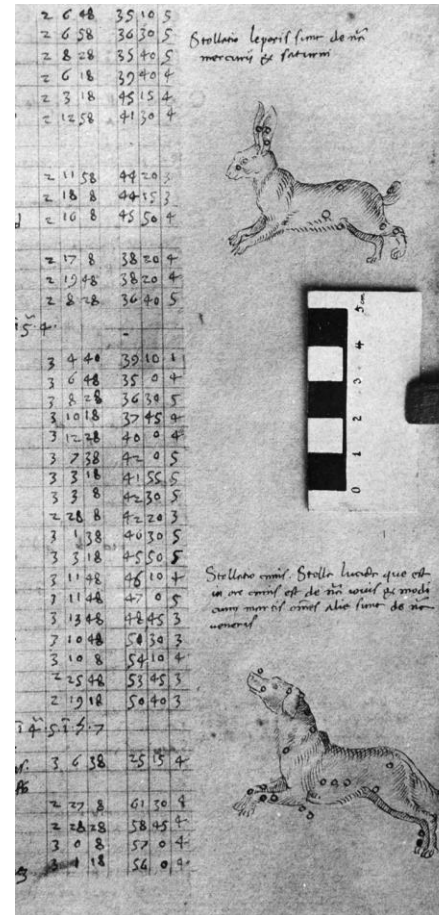 2 6 48 35 10 5
2 6 58 36 30 5
2 8 28 35 40 5
2 6 18 39 40 4
2 3 18 45 15 4
2 12 58 41 30 4
2 11 58 44 20 3
2 18 8 44 15 3
2 16 8 45 50 4
2 17 8 38 20 4
2 19 48 38 20 4
2 8 28 36 40 5
3 4 40 39 10 1
3 6 48 35 0 4
3 8 28 36 30 5
3 10 18 37 45 4
3 12 28 40 0 4
3 7 38 42 0 5
3 3 18 41 55 5
3 3 8 42 30 5
2 28 8 42 20 3
3 1 38 40 30 5
3 3 18 45 50 5
3 11 48 46 10 4
3 11 48 47 0 5
3 13 48 48 45 3
3 10 48 50 30 3
3 10 8 54 10 4
2 25 48 53 45 3
2 19 18 50 40 3
3 6 38 25 15 4
2 27 8 61 30
2 28 28 58 45 4
3 0 8 57 0 4
3 1 18 56 0 4
Stellatio leporis sunt de nã
mercurij & saturni
5 cm
4
3
2
1
0
Stellatio canis. Stella lucida que est
in ore canis est de nã iovis & modi
cum martis omnes alie sunt de nã
veneris